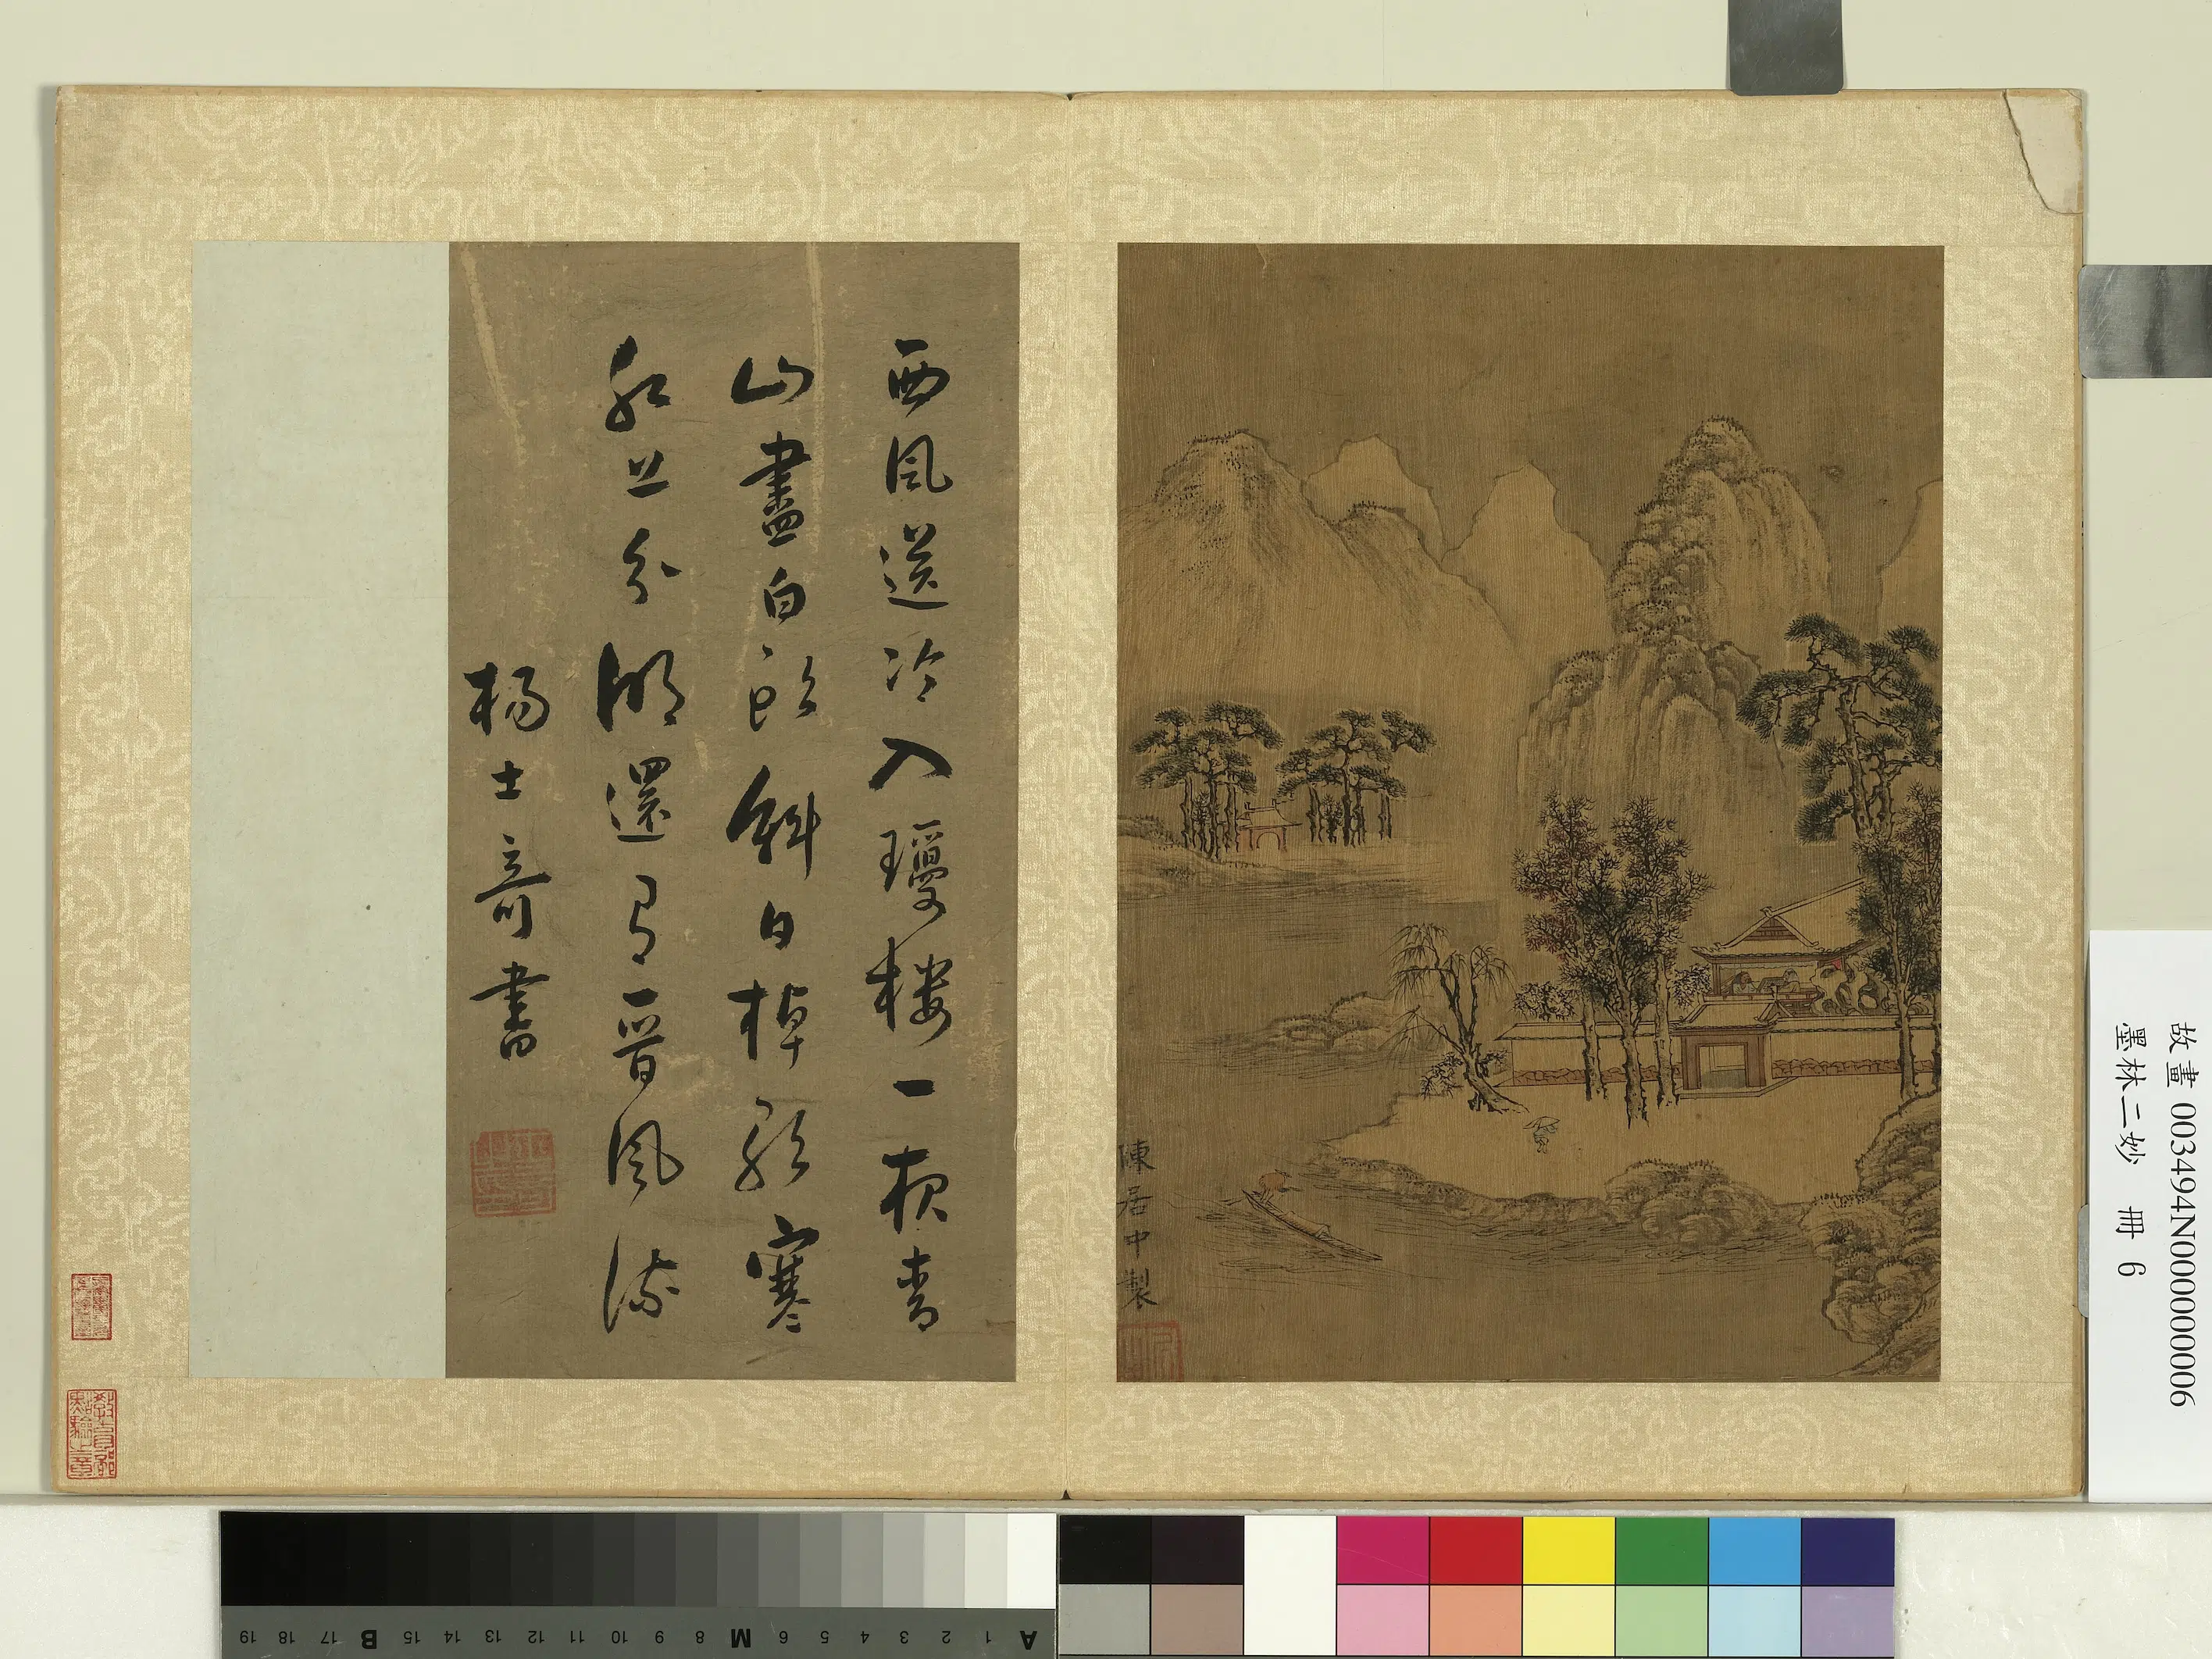 西風送冷入瓊樓一夜青
山盡白頭斜日棹歌寒
上分明還有晉風流
楊士奇書
陳居中製
教育部點驗之章
故畫 003494N000000006
墨林二妙 冊 6
A 1 2 3 4 5 6 M 8 9 10 11 12 13 14 15 B 17 18 19